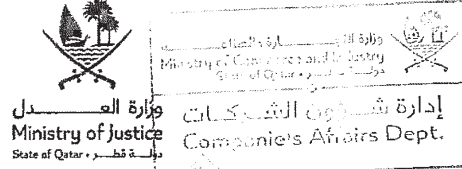 وزارة العـــــــــدل
Ministry of Justice
State of Qatar • دولـــة قطـــر
وزارة التجـــــــارة والصناعـــــــة
Ministry of Commerce and Industry
State of Qatar • دولـــة قطـــر
إدارة شـــؤون الشـــركـــات
Companie's Affairs Dept.